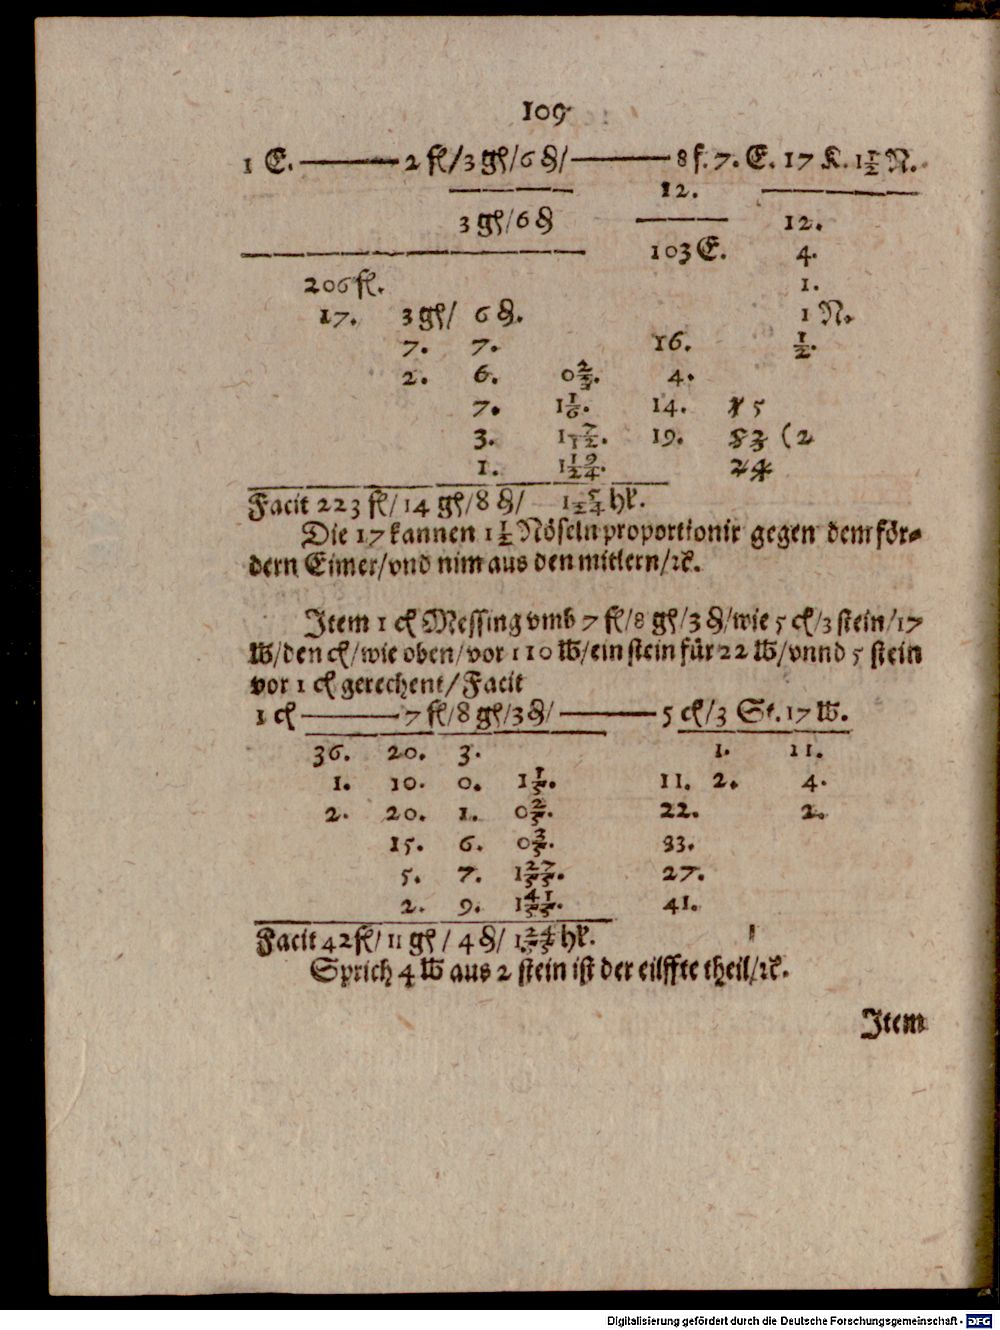 109
1 E. ——— 2 fl/3 gl/6 ₰/ ——— 8 f. 7. E. 17 K. 1½ N.
12.
3 gl/6 ₰ 12.
103 E. 4.
206 fl. 1.
17. 3 gl/ 6 ₰. 1 N.
7. 7. 16. ½.
2. 6. 0⅔. 4.
7. 1⅙. 14. 1 5
3. 1 7/12. 19. 8 3 (2
1. 1 19/24. 2 4
Facit 223 fl/14 gl/8 ₰/ 1 5/24 hl.
Die 17 kannen 1½ Nöseln proportionir gegen dem för-
dern Eimer/vnd nim aus den mitlern/ꝛc.
Item 1 cl Messing vmb 7 fl/8 gl/3 ₰/wie 5 cl/3 stein/17
℔/den cl/wie oben/vor 110 ℔/ein stein für 22 ℔/vnnd 5 stein
vor 1 cl gerechent/Facit
1 cl ——— 7 fl/8 gl/3 ₰/ ——— 5 cl/3 St. 17 ℔.
36. 20. 3. 1. 11.
1. 10. 0. 1⅕. 11. 2. 4.
2. 20. 1. 0⅖. 22. 2.
15. 6. 0⅗. 33.
5. 7. 1 27/55. 27.
2. 9. 1 41/55. 41.
Facit 42 fl/11 gl/4 ₰/ 1 24/55 hl.
Sprich 4 ℔ aus 2 stein ist der eilffte theil/ꝛc.
Item
Digitalisierung gefördert durch die Deutsche Forschungsgemeinschaft - DFG